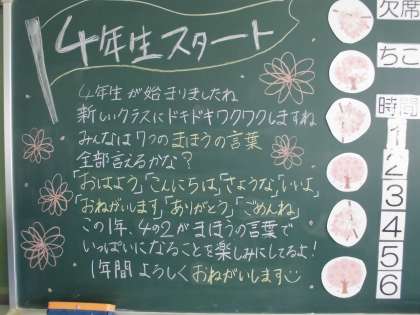 4年生スタート
4年生が始まりましたね
新しいクラスにドキドキワクワクしますね
みんなは7つのまほうの言葉
全部言えるかな？
「おはよう」「こんにちは」「さようなら」「いいよ」
「おねがいします」「ありがとう」「ごめんね」
この1年、4の2がまほうの言葉で
いっぱいになることを楽しみにしてるよ！
1年間よろしくおねがいします
欠席
ちこ
時間
1
2
3
4
5
6